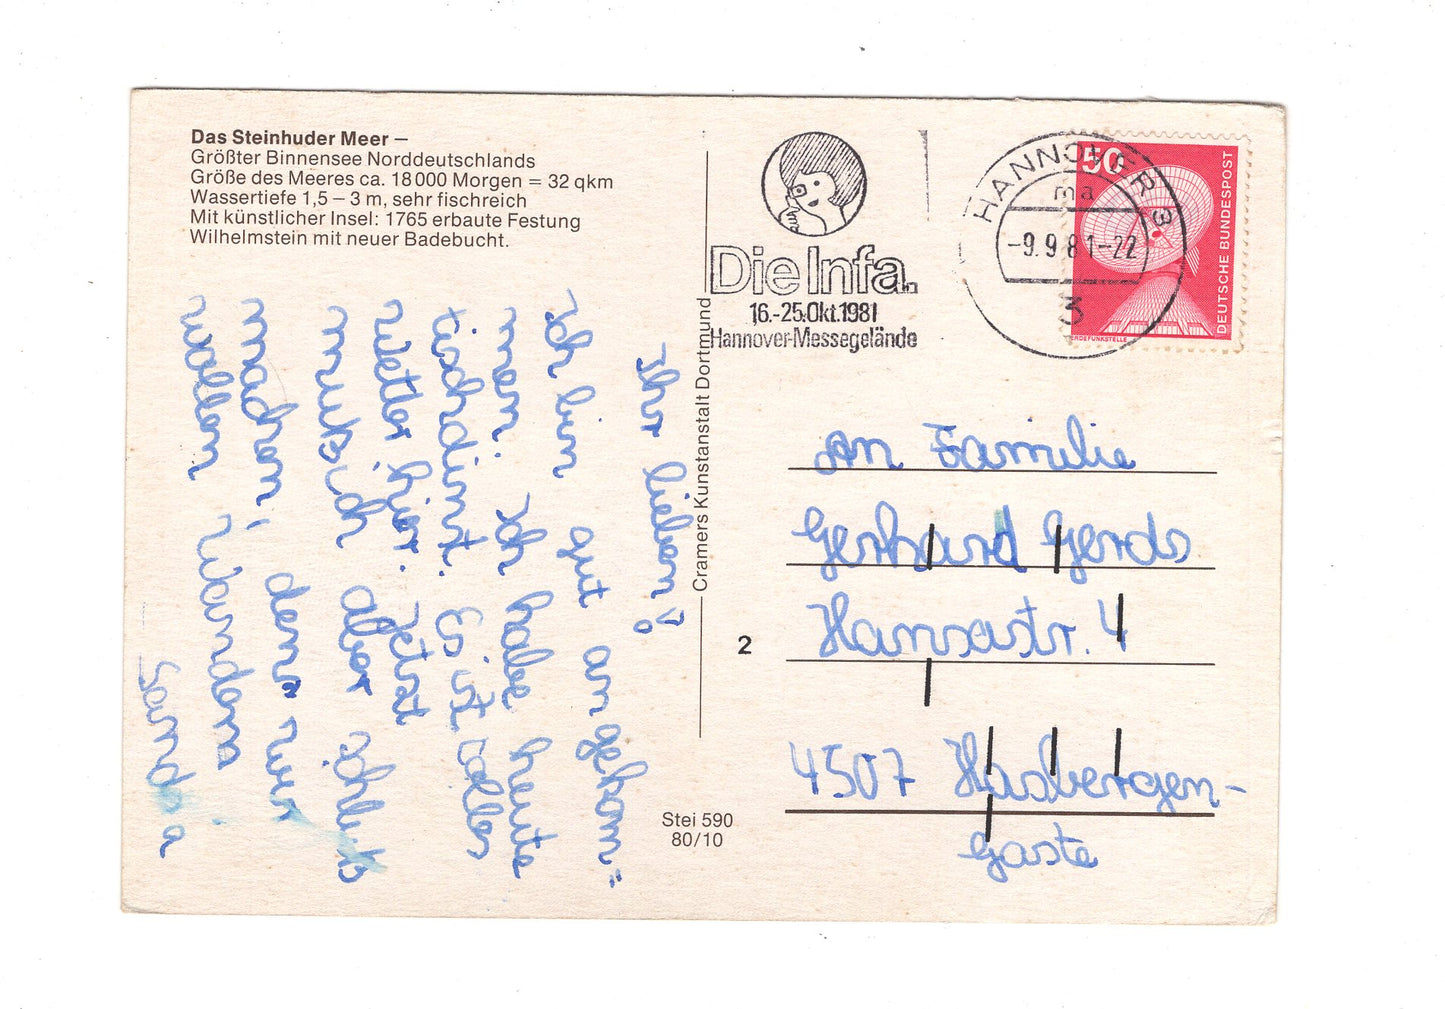 Das Steinhuder Meer –
Größter Binnensee Norddeutschlands
Größe des Meeres ca. 18000 Morgen = 32 qkm
Wassertiefe 1,5 – 3 m, sehr fischreich
Mit künstlicher Insel: 1765 erbaute Festung
Wilhelmstein mit neuer Badebucht.
Ihr lieben!
Ich bin gut angekom=
men. Ich habe heute
Tischdinst. Es ist tolles
Wetter hier. Jetzt
muß ich aber schluß
machen, denn wir
wollen wandern
Sandra
Cramers Kunstanstalt Dortmund
Stei 590
80/10
Die Infa.
16.-25.Okt.1981
Hannover-Messegelände
HANNOVER 3
ma
-9.9.81-22
3
50
DEUTSCHE BUNDESPOST
ERDEFUNKSTELLE
An Familie
Gerhard Gerds
Hansastr. 4
2
4507 Hasbergen-
Gaste